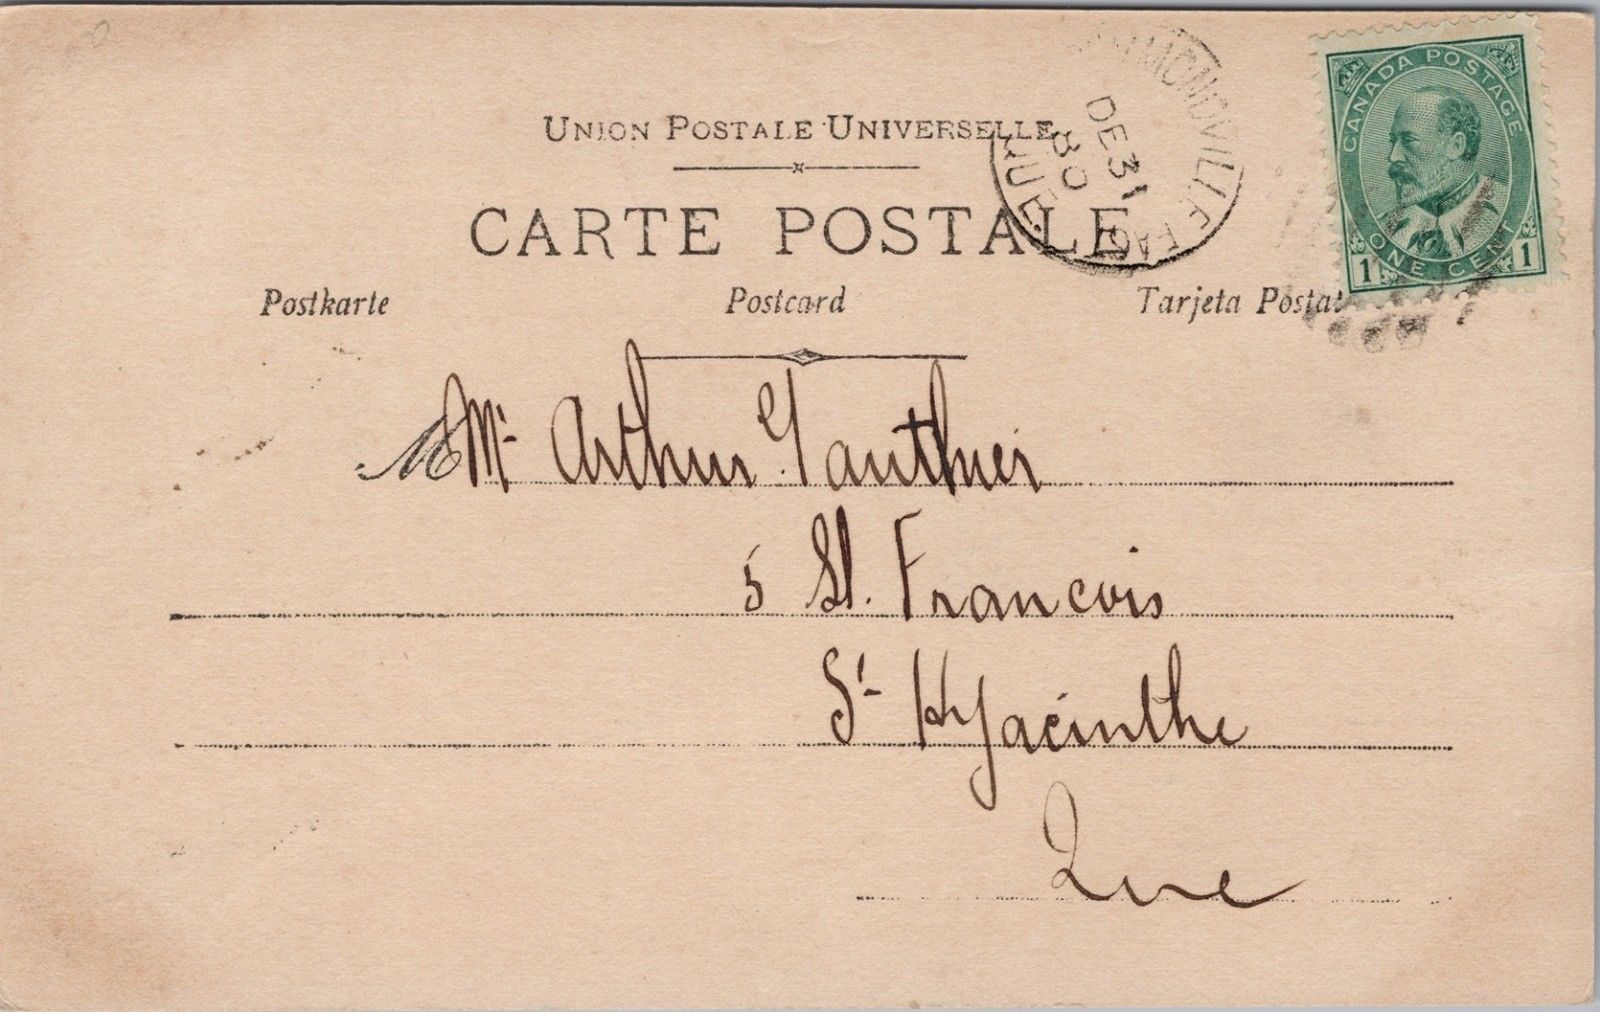 UNION POSTALE UNIVERSELLE
CARTE POSTALE
Postkarte Postcard Tarjeta Postal
DRUMMONDVILLE EAST
QUE.
DE 31
CANADA POSTAGE
ONE CENT
1 1
M Mr Arthur Gauthier
5 St. Francois
St Hyacinthe
Que